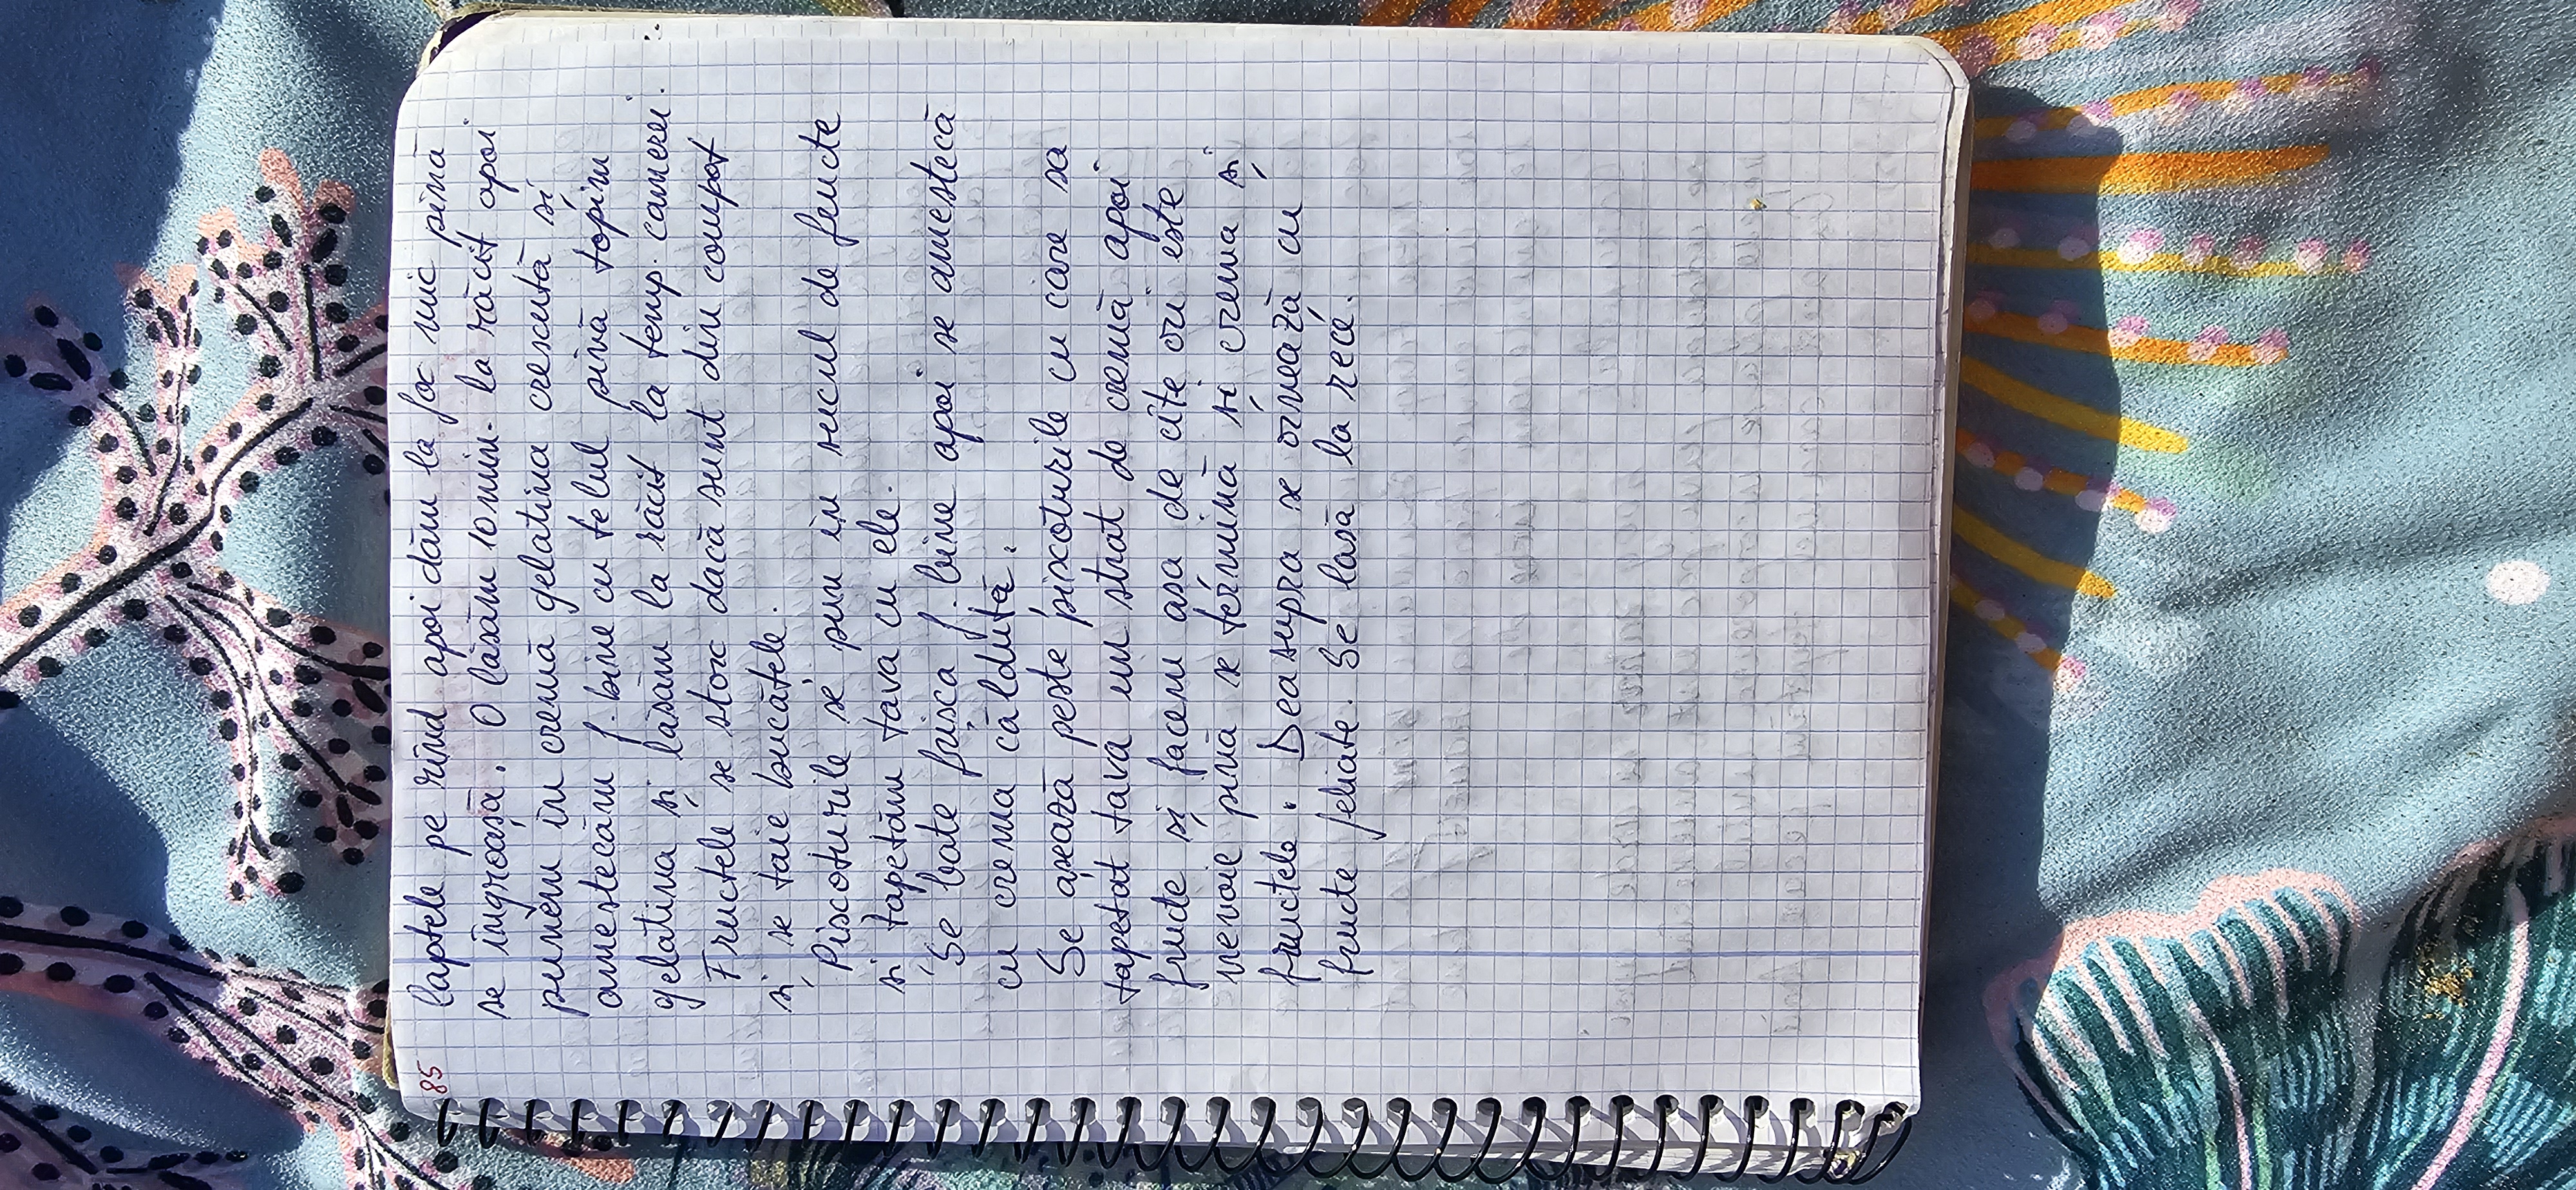 85
laptele pe rînd apoi dăm la foc mic pînă
se îngroașă. O lăsăm 10 min. la răcit apoi
punem în cremă gelatina crescută și
amestecăm f. bine cu telul pînă topim
gelatina și lăsăm la răcit la temp. camerei.
Fructele se storc dacă sunt din compot
și se taie bucățele.
Pișcoturile se pun în sucul de fructe
și tapetăm tava cu ele.
Se bate frișca f. bine apoi se amestecă
cu crema călduță.
Se așează peste pișcoturile cu care sa
tapetat tava un strat de cremă apoi
fructe și facem așa de cîte ori este
nevoie pînă se termină și crema și
fructele. Deasupra se ornează cu
fructe feliate. Se lasă la rece.